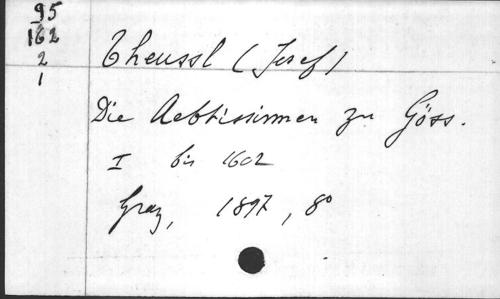 95
162
2
1
Theussl (Josef)
Die Aebtissinnen zu Göss.
I bis 1602
Graz, 1897, 8°